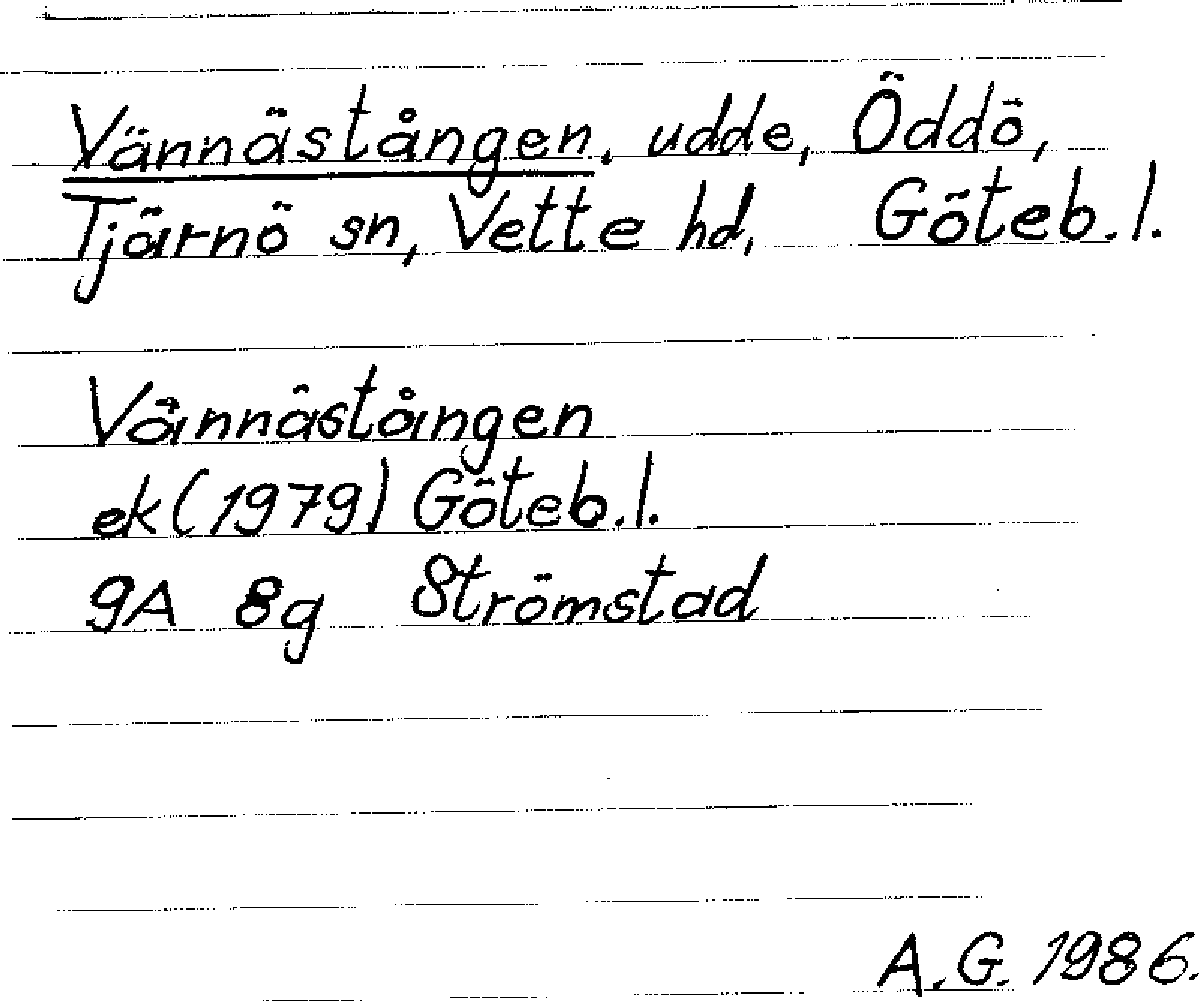 Vännästången, udde, Öddö,
Tjärnö sn, Vette hd, Göteb.l.
Vännästången
ek (1979) Göteb.l.
9A 8g Strömstad
A.G. 1986.